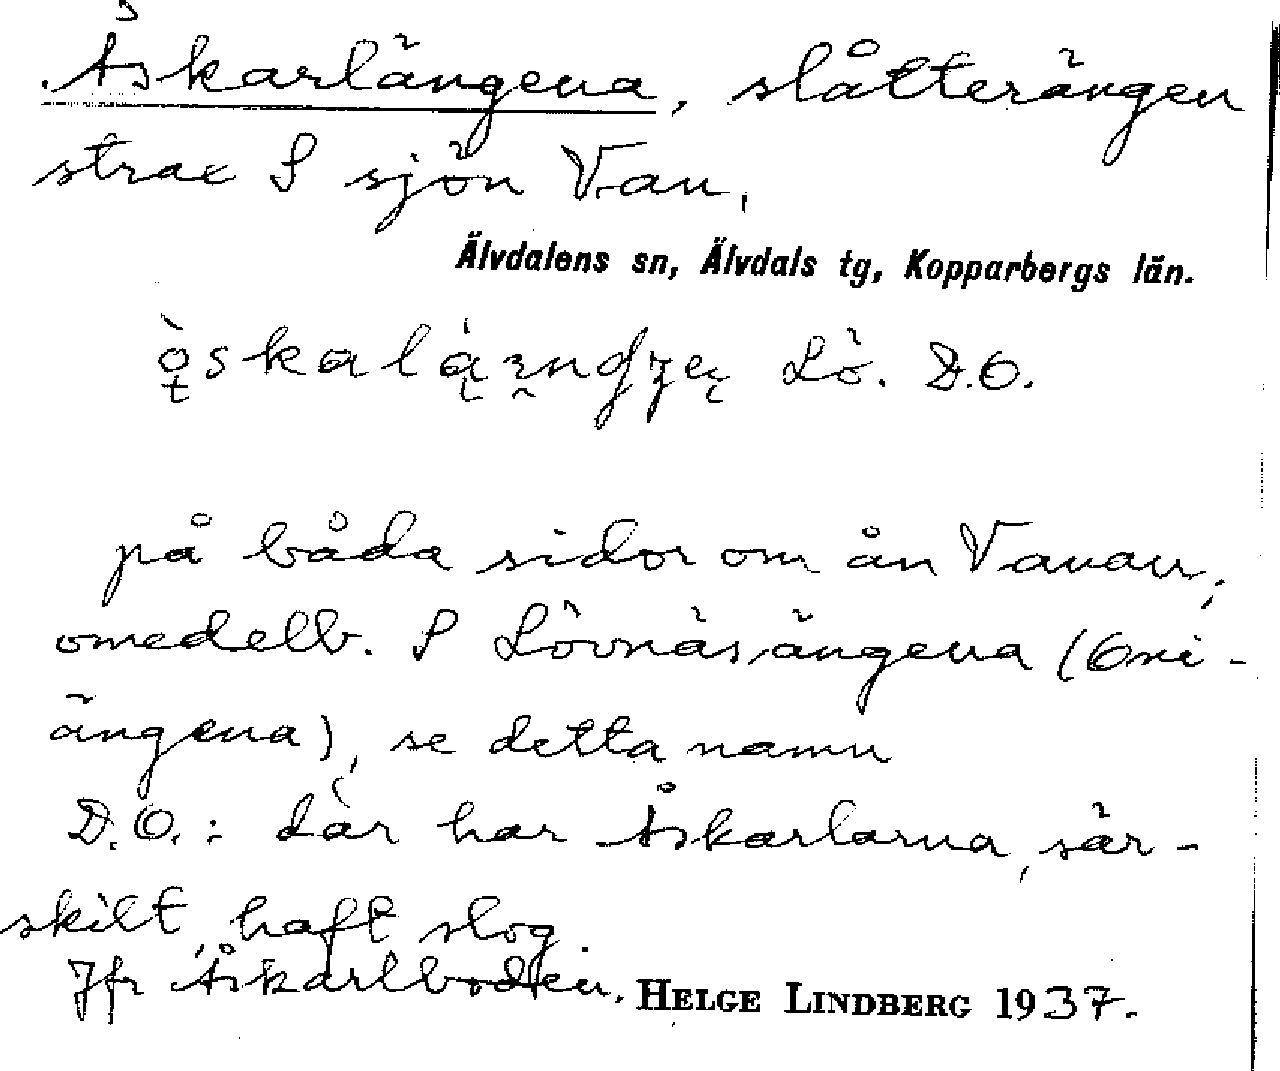 Åskarlängena, slåtterängen
strax S sjön Van,
Älvdalens sn, Älvdals tg, Kopparbergs län.
Lö. D.O.
på båda sidor om ån Vanan,
omedelb. S Lövnäsängena (Oni-
ängena), se detta namn
D.O.: där har Åskarlarna, sär-
skilt, haft slog.
Jfr Åskarlboden. HELGE LINDBERG 1937.